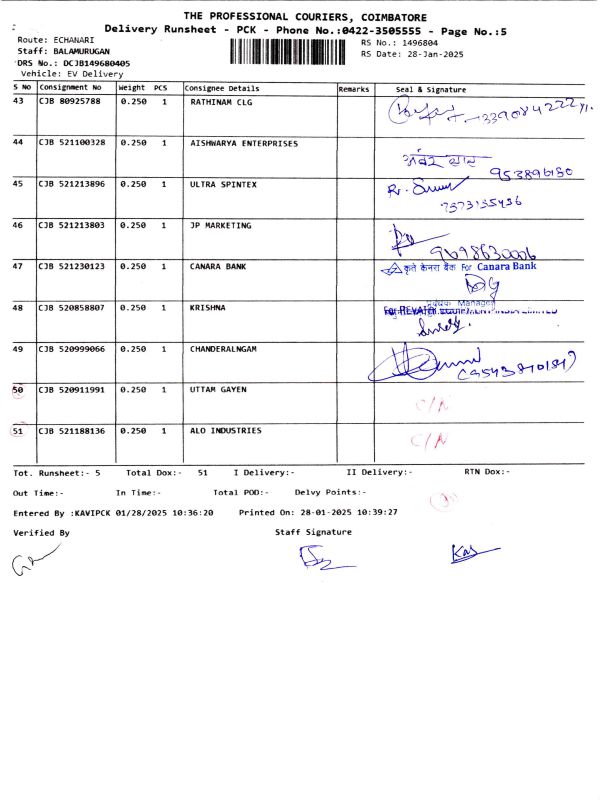 THE PROFESSIONAL COURIERS, COIMBATORE
Delivery Runsheet - PCK - Phone No.:0422-3505555 - Page No.:5
Route: ECHANARI
RS No.: 1496804
Staff: BALAMURUGAN
RS Date: 28-Jan-2025
DRS No.: DCJB149680405
Vehicle: EV Delivery
S No Consignment No Weight PCS Consignee Details Remarks Seal & Signature
43 CJB 80925788 0.250 1 RATHINAM CLG
44 CJB 521100328 0.250 1 AISHWARYA ENTERPRISES
45 CJB 521213896 0.250 1 ULTRA SPINTEX
7373135436
46 CJB 521213803 0.250 1 JP MARKETING
47 CJB 521230123 0.250 1 CANARA BANK कृते केनरा बैंक For Canara Bank
प्रबंधक Manager
48 CJB 520858807 0.250 1 KRISHNA
49 CJB 520999066 0.250 1 CHANDERALNGAM
50 CJB 520911991 0.250 1 UTTAM GAYEN C/N
51 CJB 521188136 0.250 1 ALO INDUSTRIES C/N
Tot. Runsheet:- 5 Total Dox:- 51 I Delivery:- II Delivery:- RTN Dox:-
Out Time:- In Time:- Total POD:- Delvy Points:-
Entered By :KAVIPCK 01/28/2025 10:36:20 Printed On: 28-01-2025 10:39:27
Verified By Staff Signature